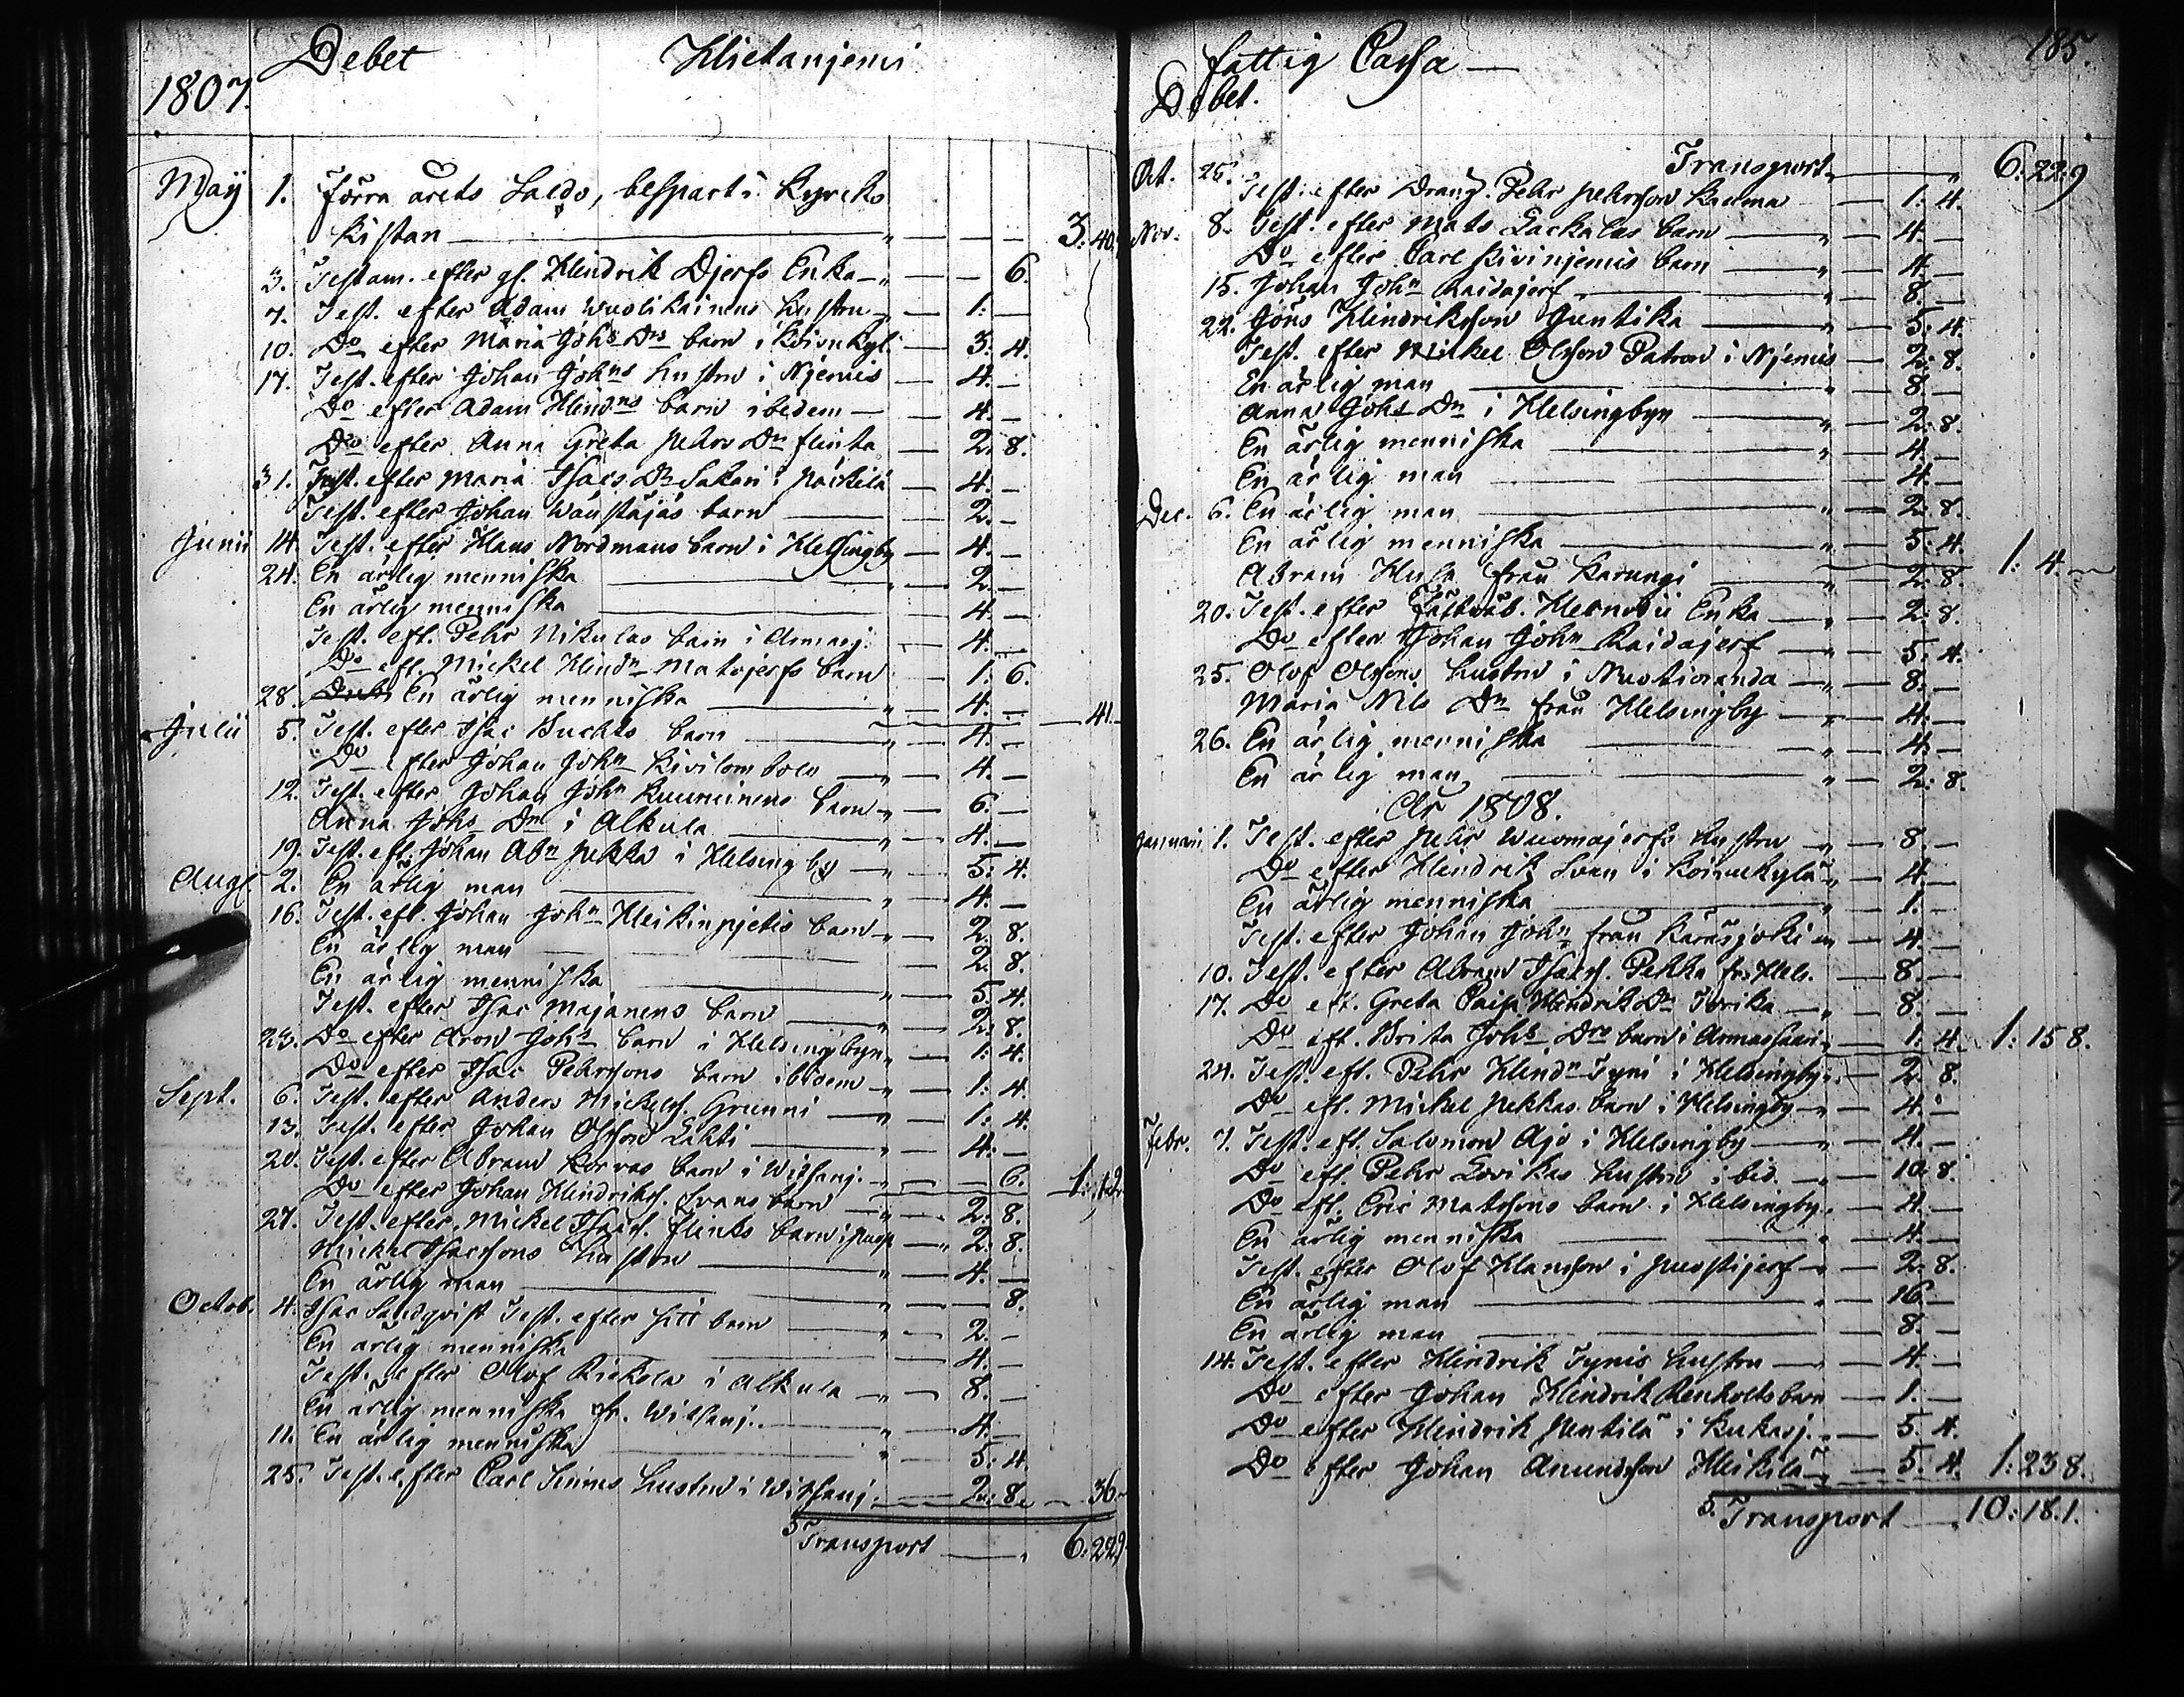 Debet Hietanjemi
1807.
May 1. Förra årets Saldo, besparti Kyrcko
Kistan 3:40
3. Testam. efter gl. Hindrik Djerfs Enka 6.
7. Test. efter Adam Wuolikainens hustru 1:
10. Do efter Maria Johs Drs barn i Koivukyl. 3:4.
17. Test. efter Johan Johns hustru i Njemis 4.
Do efter Adam Hindns barn ibidem 4.
Do efter Anna Greta Pehrs Dr flinta 2:8.
31. Test. efter Maria Isacs Dr Sakari i Päckilä 4.
Test. efter Johan Wänstäjäs barn 2.
Junii 14. Test. efter Klaus Nordmans barn i Helsingby 4.
24. En ärlig menniska 2.
En ärlig menniska 4.
Test. eft. Pehr Nikulas barn i Armasj. 4.
Do eft. Mickel Hindn Matojerfs barn 1:6.
28. En ärlig menniska 4. 41.
Julii 5. Test. efter Isac Buchts barn 4.
Do efter Johan John Kivilombolo 4.
12. Test. efter Johan John Kuuninens barn 6.
Anna Johs Dr i Alkula 4.
19. Test. eft. Johan Abn Pekka i Helsingby 5:4.
Aug. 2. En ärlig man 4.
16. Test. eft. Johan John Heikinpjetis barn 2:8.
En ärlig man 2:8.
En ärlig menniska 5:4.
Test. efter Isac Majanens barn 2:8.
23. Do efter Aron Johs barn i Helsingbyn 1:4.
Do efter Isac Pehrsons barn ibidem 1:4.
Sept. 6. Test. efter Anders Mickels. Grunni 1:4.
13. Test. efter Johan Olsson Lahti 4.
20. Test. efter Abram Korvas barn i Witsanj. 6. 1:12
Do efter Johan Hindriks. Svans barn 2:8.
27. Test. efter Mickel Isacs. flinks barn 2:8.
Mickel Isacssons hustru 4.
En ärlig man 8.
Octob. 4. Isac Sandqvist Test. efter sitt barn 2.
En ärlig menniska 4.
Test. efter Olof Rickola i Alkula 8.
En ärlig menniska fr. Witsanj. 4.
11. En ärlig menniska 5:4.
25. Test. efter Carl Sirnis hustru i Witsanj. 2:8. 36.
Transport 6:22.9
185.
fattig Cassa
Debet.
Oct. 25. Transport 6:22:9
Test. efter Dräng. Pehr Pehrsson Kauma 1:4.
Nov. 8. Test. efter Mats Lackalas barn 4.
Do efter Carl Kivinjemis barn 4.
15. Johan John Raidajerf 8.
22. Jöns Hindriksson Juntika 5:4.
Test. efter Mickel Olsson Patron i Njemis 2:8.
En ärlig man 8.
Anna Johs Dr i Helsingbyn 2:8.
En ärlig menniska 4.
En ärlig man 4.
Dec. 6. En ärlig man 2:8.
En ärlig menniska 5:4. 1:4.
Abram Husa från Karungi 2:8.
20. Test. efter Fältväb. Hernodii Enka 2:8.
Do efter Johan John Raidajerf 5:4.
25. Olof Olssons hustru i Nuotioranda 8.
Maria Nils Dr från Helsingby 4.
26. En ärlig menniska 4.
En ärlig man 2:8.
År 1808.
Januari 1. Test. efter Pehr Wuomajerfs hustru 8.
Do efter Hindrik Svan i Koivukylä 4.
En ärlig menniska 1.
Test. efter Johan John från Karasjoki 4.
10. Test. efter Abram Isacs. Pekka fr. Hels. 8.
17. Do eft. Greta Caisa Hindriks Dr Torika 8.
Do eft. Brita Johs Drs barn i Armassaari 1:4. 1:15 8.
24. Test. eft. Pehr Hindn Tyni i Helsingby 2:8.
Do eft. Mickel Pekkas barn i Helsingby 4.
Febr. 7. Test. eft. Salomon Ajo i Helsingby 4.
Do eft. Pehr Lovikas hustru ibid. 10:8.
Do eft. Eric Matssons barn i Helsingby 4.
En ärlig menniska 4.
Test. efter Olof Hansson i Puostijerf 2:8.
En ärlig man 16.
En ärlig man 8.
14. Test. efter Hindrik Tynis hustru 4.
Do efter Johan Hindrik Renholts barn 1.
Do efter Hindrik Pentilä i Kukasj. 5:4.
Do efter Johan Anundsson Heikilä 5:4. 1:23 8.
Transport 10:18.1.